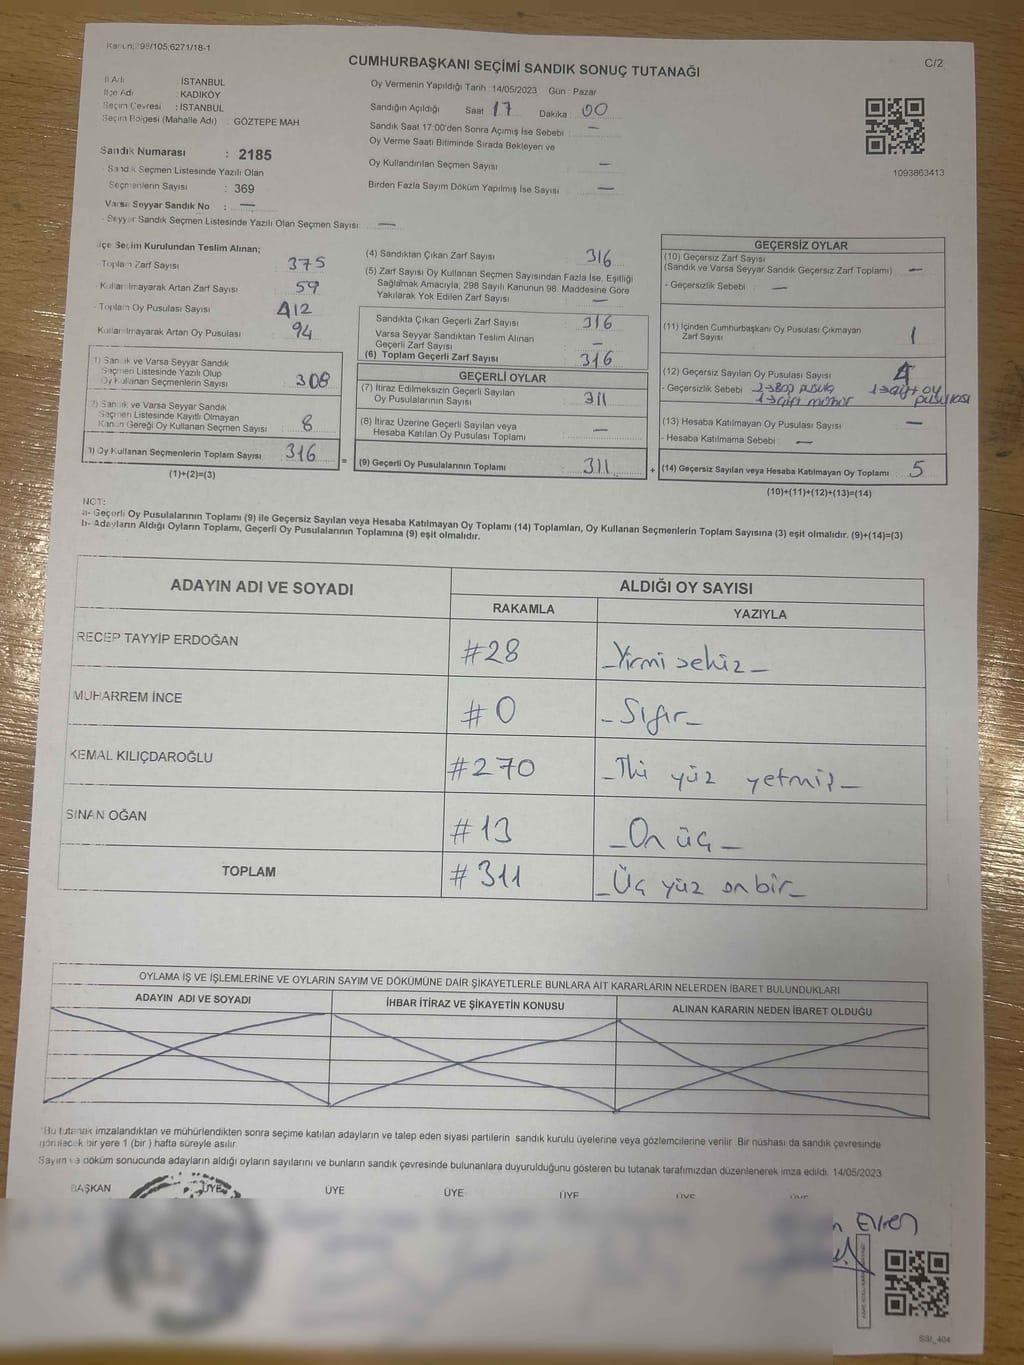 Kanun; 298/105;6271/18-1
C/2
CUMHURBAŞKANI SEÇİMİ SANDIK SONUÇ TUTANAĞI
İl Adı : İSTANBUL
İlçe Adı : KADIKÖY
Seçim Çevresi : İSTANBUL
Seçim Bölgesi (Mahalle Adı) : GÖZTEPE MAH
Sandık Numarası : 2185
- Sandık Seçmen Listesinde Yazılı Olan
Seçmenlerin Sayısı : 369
Varsa Seyyar Sandık No : —
- Seyyar Sandık Seçmen Listesinde Yazılı Olan Seçmen Sayısı: —
Oy Vermenin Yapıldığı Tarih :14/05/2023 Gün : Pazar
Sandığın Açıldığı Saat 17 Dakika : 00
Sandık Saat 17:00'den Sonra Açımış İse Sebebi : —
Oy Verme Saati Bitiminde Sırada Bekleyen ve
Oy Kullandırılan Seçmen Sayısı —
Birden Fazla Sayım Döküm Yapılmış İse Sayısı —
1093863413
İlçe Seçim Kurulundan Teslim Alınan;
- Toplam Zarf Sayısı 375
Kullanılmayarak Artan Zarf Sayısı 59
- Toplam Oy Pusulası Sayısı 412
Kullanılmayarak Artan Oy Pusulası 94
1) Sandık ve Varsa Seyyar Sandık
Seçmen Listesinde Yazılı Olup
Oy Kullanan Seçmenlerin Sayısı 308
2) Sandık ve Varsa Seyyar Sandık
Seçmen Listesinde Kayıtlı Olmayan
Kanun Gereği Oy Kullanan Seçmen Sayısı : 8
3) Oy Kullanan Seçmenlerin Toplam Sayısı 316 =
(1)+(2)=(3)
(4) Sandıktan Çıkan Zarf Sayısı 316
(5) Zarf Sayısı Oy Kullanan Seçmen Sayısından Fazla İse, Eşitliği
Sağlamak Amacıyla; 298 Sayılı Kanunun 98. Maddesine Göre
Yakılarak Yok Edilen Zarf Sayısı —
Sandıkta Çıkan Geçerli Zarf Sayısı : 316
Varsa Seyyar Sandıktan Teslim Alınan
Geçerli Zarf Sayısı —
(6) Toplam Geçerli Zarf Sayısı : 316
GEÇERLİ OYLAR
(7) İtiraz Edilmeksizin Geçerli Sayılan
Oy Pusulalarının Sayısı : 311
(8) İtiraz Üzerine Geçerli Sayılan veya
Hesaba Katılan Oy Pusulası Toplamı : —
(9) Geçerli Oy Pusulalarının Toplamı : 311 +
GEÇERSİZ OYLAR
(10) Geçersiz Zarf Sayısı
(Sandık ve Varsa Seyyar Sandık Geçersiz Zarf Toplamı) —
- Geçersizlik Sebebi : —
(11) İçinden Cumhurbaşkanı Oy Pusulası Çıkmayan
Zarf Sayısı 1
(12) Geçersiz Sayılan Oy Pusulası Sayısı : 4
- Geçersizlik Sebebi 2→Boş pusula 1→çift oy
1→çift mühür pusulası
(13) Hesaba Katılmayan Oy Pusulası Sayısı —
- Hesaba Katılmama Sebebi : —
(14) Geçersiz Sayılan veya Hesaba Katılmayan Oy Toplamı : 5
(10)+(11)+(12)+(13)=(14)
NOT:
a- Geçerli Oy Pusulalarının Toplamı (9) ile Geçersiz Sayılan veya Hesaba Katılmayan Oy Toplamı (14) Toplamları, Oy Kullanan Seçmenlerin Toplam Sayısına (3) eşit olmalıdır. (9)+(14)=(3)
b- Adayların Aldığı Oyların Toplamı, Geçerli Oy Pusulalarının Toplamına (9) eşit olmalıdır.
ADAYIN ADI VE SOYADI
ALDIĞI OY SAYISI
RAKAMLA YAZIYLA
RECEP TAYYİP ERDOĞAN #28 _Yirmi sekiz_
MUHARREM İNCE #0 _Sıfır_
KEMAL KILIÇDAROĞLU #270 _İki yüz yetmiş_
SİNAN OĞAN #13 _On üç_
TOPLAM #311 _Üç yüz on bir_
OYLAMA İŞ VE İŞLEMLERİNE VE OYLARIN SAYIM VE DÖKÜMÜNE DAİR ŞİKAYETLERLE BUNLARA AİT KARARLARIN NELERDEN İBARET BULUNDUKLARI
ADAYIN ADI VE SOYADI İHBAR İTİRAZ VE ŞİKAYETİN KONUSU ALINAN KARARIN NEDEN İBARET OLDUĞU
*Bu tutanak imzalandıktan ve mühürlendikten sonra seçime katılan adayların ve talep eden siyasi partilerin sandık kurulu üyelerine veya gözlemcilerine verilir. Bir nüshası da sandık çevresinde
görülecek bir yere 1 (bir ) hafta süreyle asılır.
Sayım ve döküm sonucunda adayların aldığı oyların sayılarını ve bunların sandık çevresinde bulunanlara duyurulduğunu gösteren bu tutanak tarafımızdan düzenlenerek imza edildi. 14/05/2023
BAŞKAN ÜYE ÜYE ÜYE ÜYE ÜYE ÜYE
Evren
SSI_404